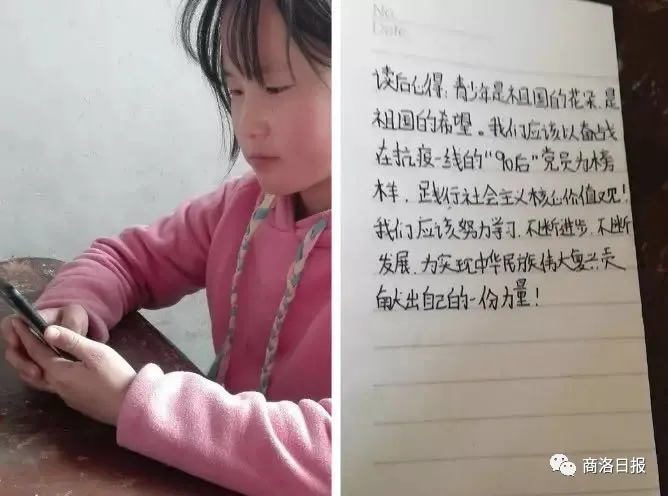 No.
Date
读后心得:青少年是祖国的花朵,是
祖国的希望。我们应该以奋战
在抗疫一线的“90后”党员为榜
样,践行社会主义核心价值观!
我们应该努力学习,不断进步,不断
发展,为实现中华民族伟大复兴贡
献出自己的一份力量!
商洛日报